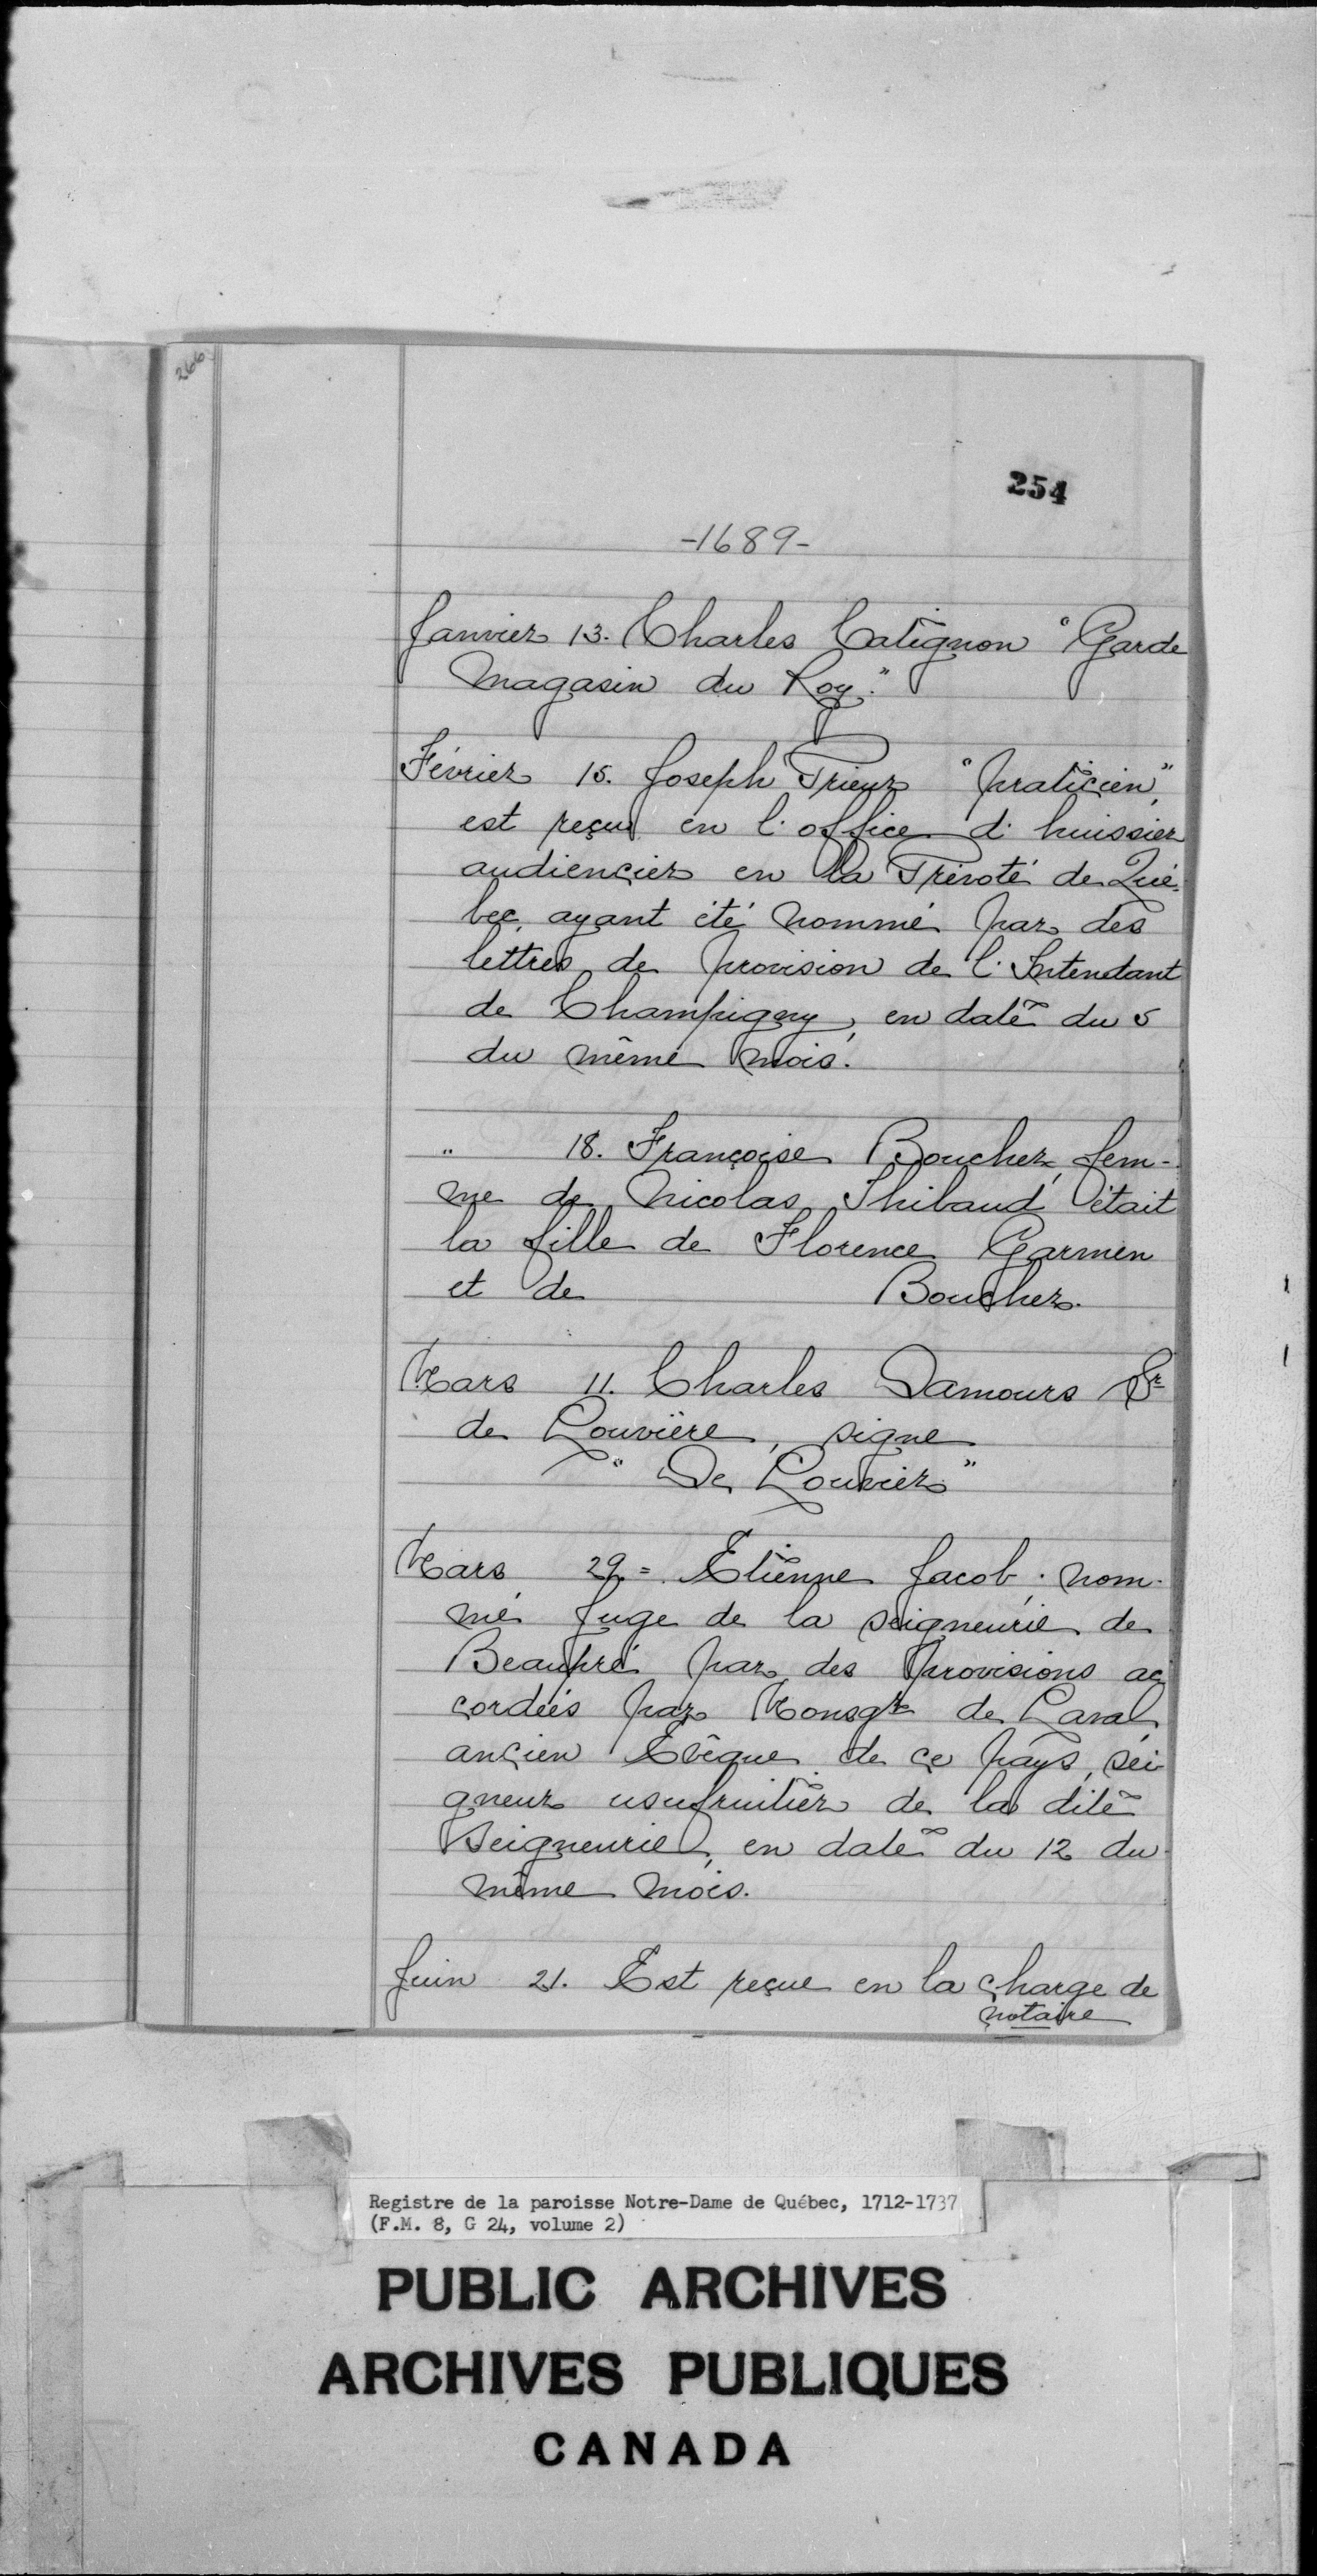 266
254
-1689-
Janvier 13. Charles Catignon "Garde
Magasin du Roy."
Février 15. Joseph Prieur "praticien",
est reçu en l'office d'huissier
audiencier en la Prévoté de Qué-
bec, ayant été nommé par des
lettres de provision de l'Intendant
de Champigny, en date du 5
du même mois.
" 18. Françoise Boucher, fem-
me de Nicolas Thibaud était
la fille de Florence Garmen
et de Boucher.
Mars 11. Charles Damours Sr
de Louvière, signe
"De Louvier"
Mars 29 = Etienne Jacob, nom-
mé Juge de la seigneurie de
Beaupré par des provisions ac
cordées par Monsgr de Laval
ancien Evêque de ce pays, sei
gneur usufruitier de la dite
Seigneurie, en date du 12 du
même mois.
Juin 21. Est reçue en la charge de
notaire
Registre de la paroisse Notre-Dame de Québec, 1712-1737
(F.M. 8, G 24, volume 2)
PUBLIC ARCHIVES
ARCHIVES PUBLIQUES
CANADA